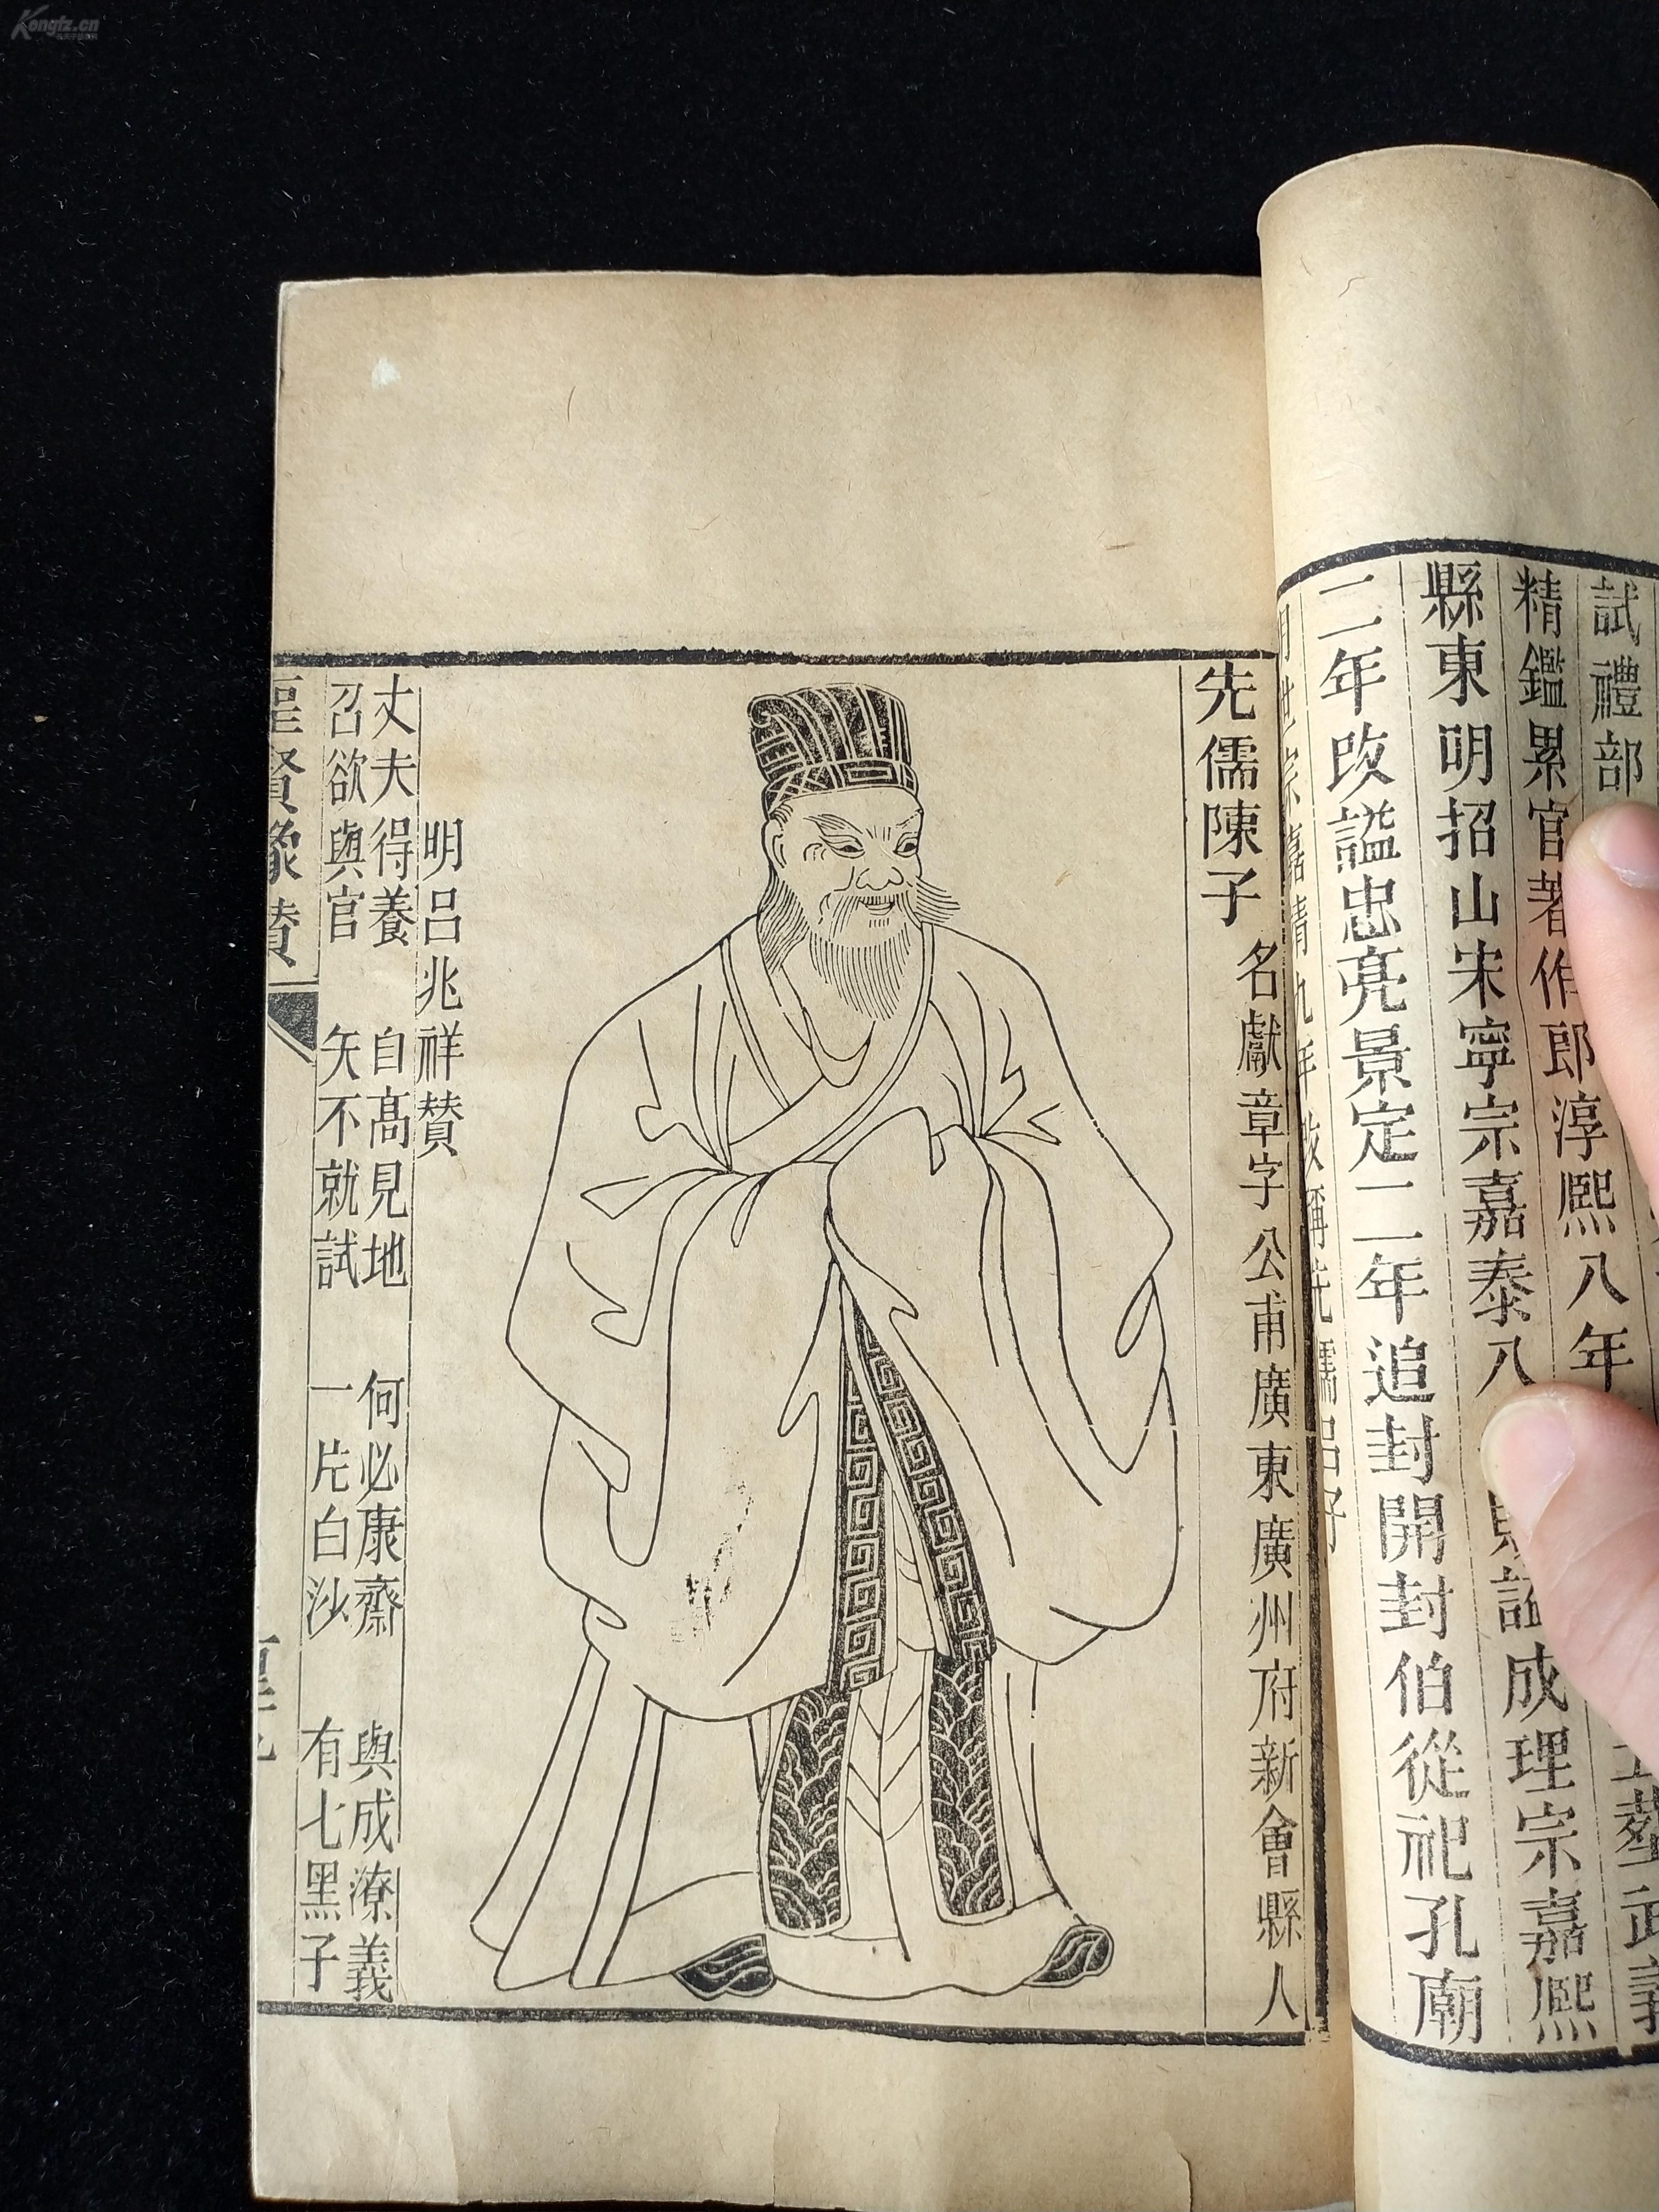 試禮部
精鑑累官著作郎淳熙八年
縣東明招山宋寧宗嘉泰八
諡成理宗嘉熙
二年改謚忠亮景定二年追封開封伯從祀孔廟
先儒陳子
名獻章字公甫廣東廣州府新會縣人
明呂兆祥贊
丈夫得養 自高見地 何必康齋 與成潦義
召欲與官 矢不就試 一片白沙 有七黑子
聖賢像贊
Kongfz.cn